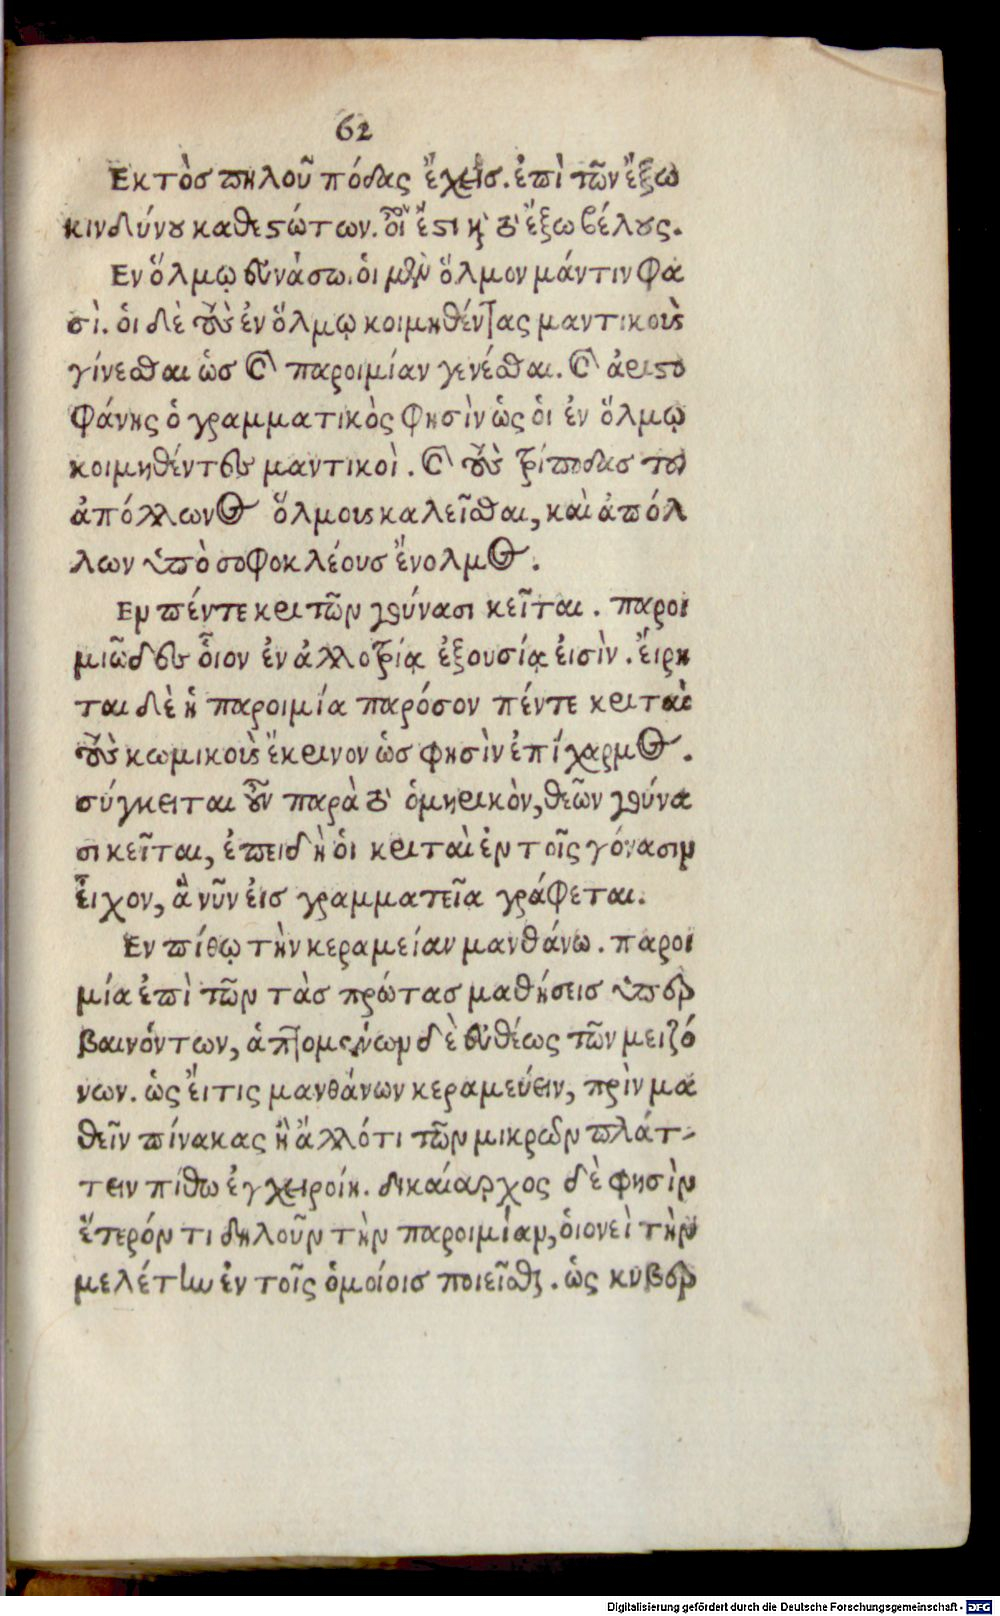 62
Εκτὸσ πηλοῦ πόδας ἔχεισ. ἐπὶ τῶν ἔξω
κινδύνου καθεστώτων. οἷόν ἐστι καὶ τὸ ἔξω βέλους.
Εν ὅλμῳ εὐνάσω. οἱ μὲν ὅλμον μάντιν φα
σὶ. οἱ δὲ τοὺς ἐν ὅλμῳ κοιμηθέντας μαντικοὺς
γίνεσθαι ὡσ καὶ παροιμίαν γενέσθαι. καὶ ἀριστο
φάνης ὁ γραμματικὸς φησὶν ὡς ὁι ἐν ὅλμῳ
κοιμηθέντες μαντικοὶ. καὶ τοὺς τρίποδασ τοῦ
ἀπόλλωνος ὅλμους καλεῖσθαι, καὶ ἀπόλ
λων ὑπὸ σοφοκλέουσ ἔνολμος.
Εν πέντε κριτῶν γούνασι κεῖται. παροι
μιῶδες ὅιον ἐν ἀλλοτρίᾳ ἐξουσίᾳ ἐισὶν. ἔιρη
ται δὲ ἡ παροιμία παρόσον πέντε κριταὶ
τοὺς κωμικοὺς ἔκρινον ὡσ φησὶν ἐπίχαρμος.
σύγκειται οὖν παρὰ τὸ ὁμηρικὸν, θεῶν γούνα
σι κεῖται, ἐπειδὴ ὁι κριταὶ ἐν τοῖς γόνασιν
εἶχον, ἃ νῦν ἐισ γραμματεῖα γράφεται.
Εν πίθῳ τὴν κεραμείαν μανθάνω. παροι
μία ἐπὶ τῶν τὰσ πρώτασ μαθήσεισ ὑπερ
βαινόντων, ἁπτομένων δὲ εὐθέως τῶν μειζό
νων. ὡς ἔιτις μανθάνων κεραμεύειν, πρὶν μα
θεῖν πίνακας ἢ ἄλλότι τῶν μικρῶν πλάτ-
τειν πίθω ἐγχειροίη. δικαίαρχος δὲ φησὶν
ἕτερόν τι δηλοῦν τὴν παροιμίαν, ὁιονεὶ τὴν
μελέτην ἐν τοῖς ὁμοίοισ ποιεῖσθαι. ὡς κυβερ
Digitalisierung gefördert durch die Deutsche Forschungsgemeinschaft - DFG